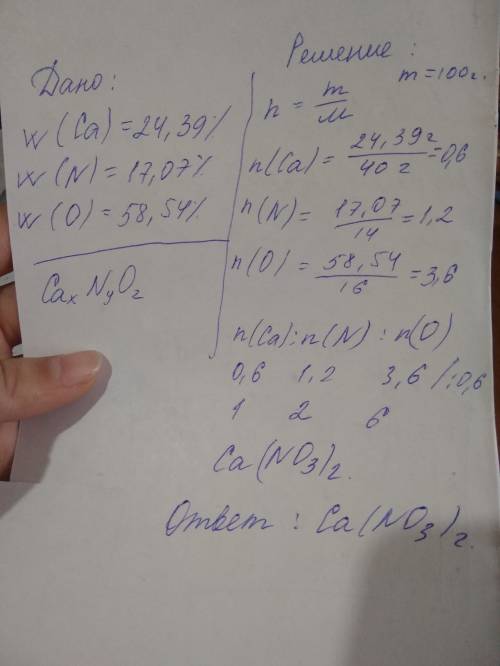 Дано:
w (Ca) = 24,39%
w (N) = 17,07%
w (O) = 58,54%
CaxNyOz
Решение:
m = 100г.
n = m/M
n(Ca) = 24,39г/40г = 0,6
n(N) = 17,07/14 = 1,2
n(O) = 58,54/16 = 3,6
n(Ca):n(N) : n(O)
0,6 1,2 3,6 /:0,6
1 2 6
Ca(NO3)2.
Ответ : Ca(NO3)2.